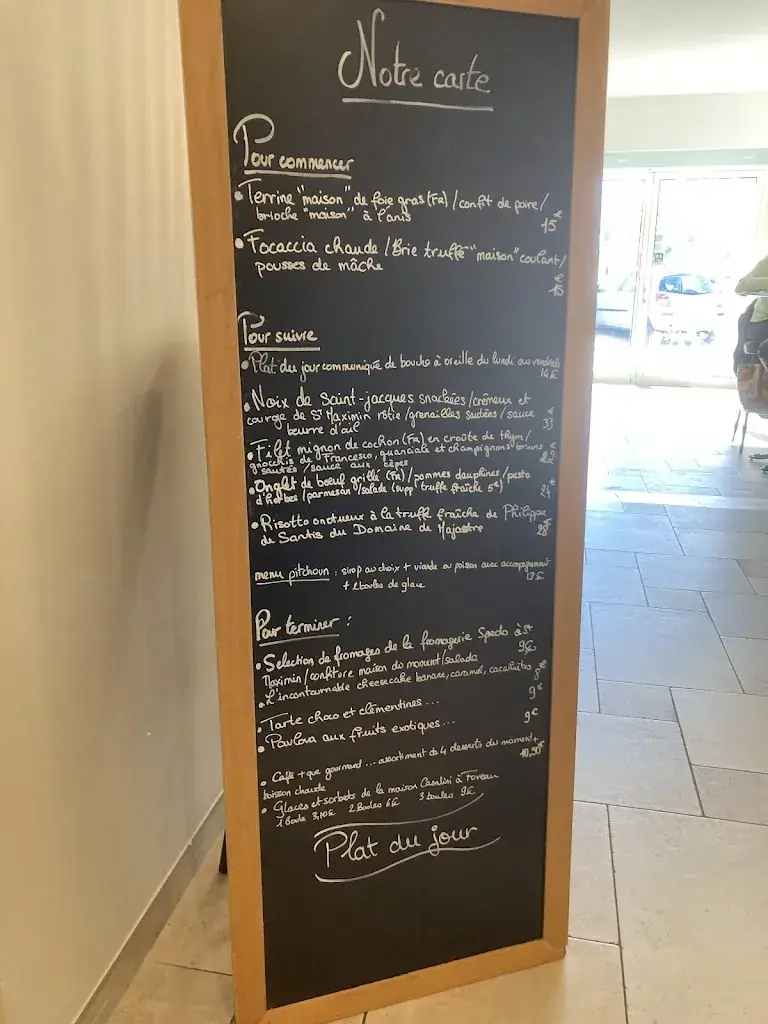 Notre carte
Pour commencer
• Terrine "maison" de foie gras (Fr) / confit de poire /
brioche "maison" à l'anis
15€
• Focaccia chaude / Brie truffé "maison" coulant /
pousses de mâche
15€
Pour suivre
• Plat du jour communiqué de bouche à oreille du lundi au vendredi
14€
• Noix de Saint-jacques snackées / crémeux et
courge de St Maximin rôtie / grenailles sautées / sauce
beurre d'ail
33€
• Filet mignon de cochon (Fr) en croûte de thym /
gnocchis de Francesco, guanciale et champignons bruns
sautés / sauce aux cèpes
22€
• Onglet de boeuf grillé (Fr) / pommes dauphines / pesto
d'herbes / parmesan / salade (supp truffe fraîche 5€)
24€
• Risotto onctueux à la truffe fraîche de Philippe
de Santis du Domaine de Majastre
28€
menu pitchoun : sirop au choix + viande ou poisson avec accompagnement
+ 2 boules de glace
13€
Pour terminer :
• Selection de fromages de la fromagerie Specio à St
Maximin / confiture maison du moment / salade
9€
• L'incontournable cheesecake banane, caramel, cacahuètes 8€
• Tarte choco et clémentines... 9€
• Pavlova aux fruits exotiques... 9€
• Café + que gourmand ... assortiment de 4 desserts du moment +
boisson chaude
10,50€
• Glaces et sorbets de la maison Casalini à Foveau
1 Boule 3,10€ 2 Boules 6€ 3 boules 9€
Plat du jour